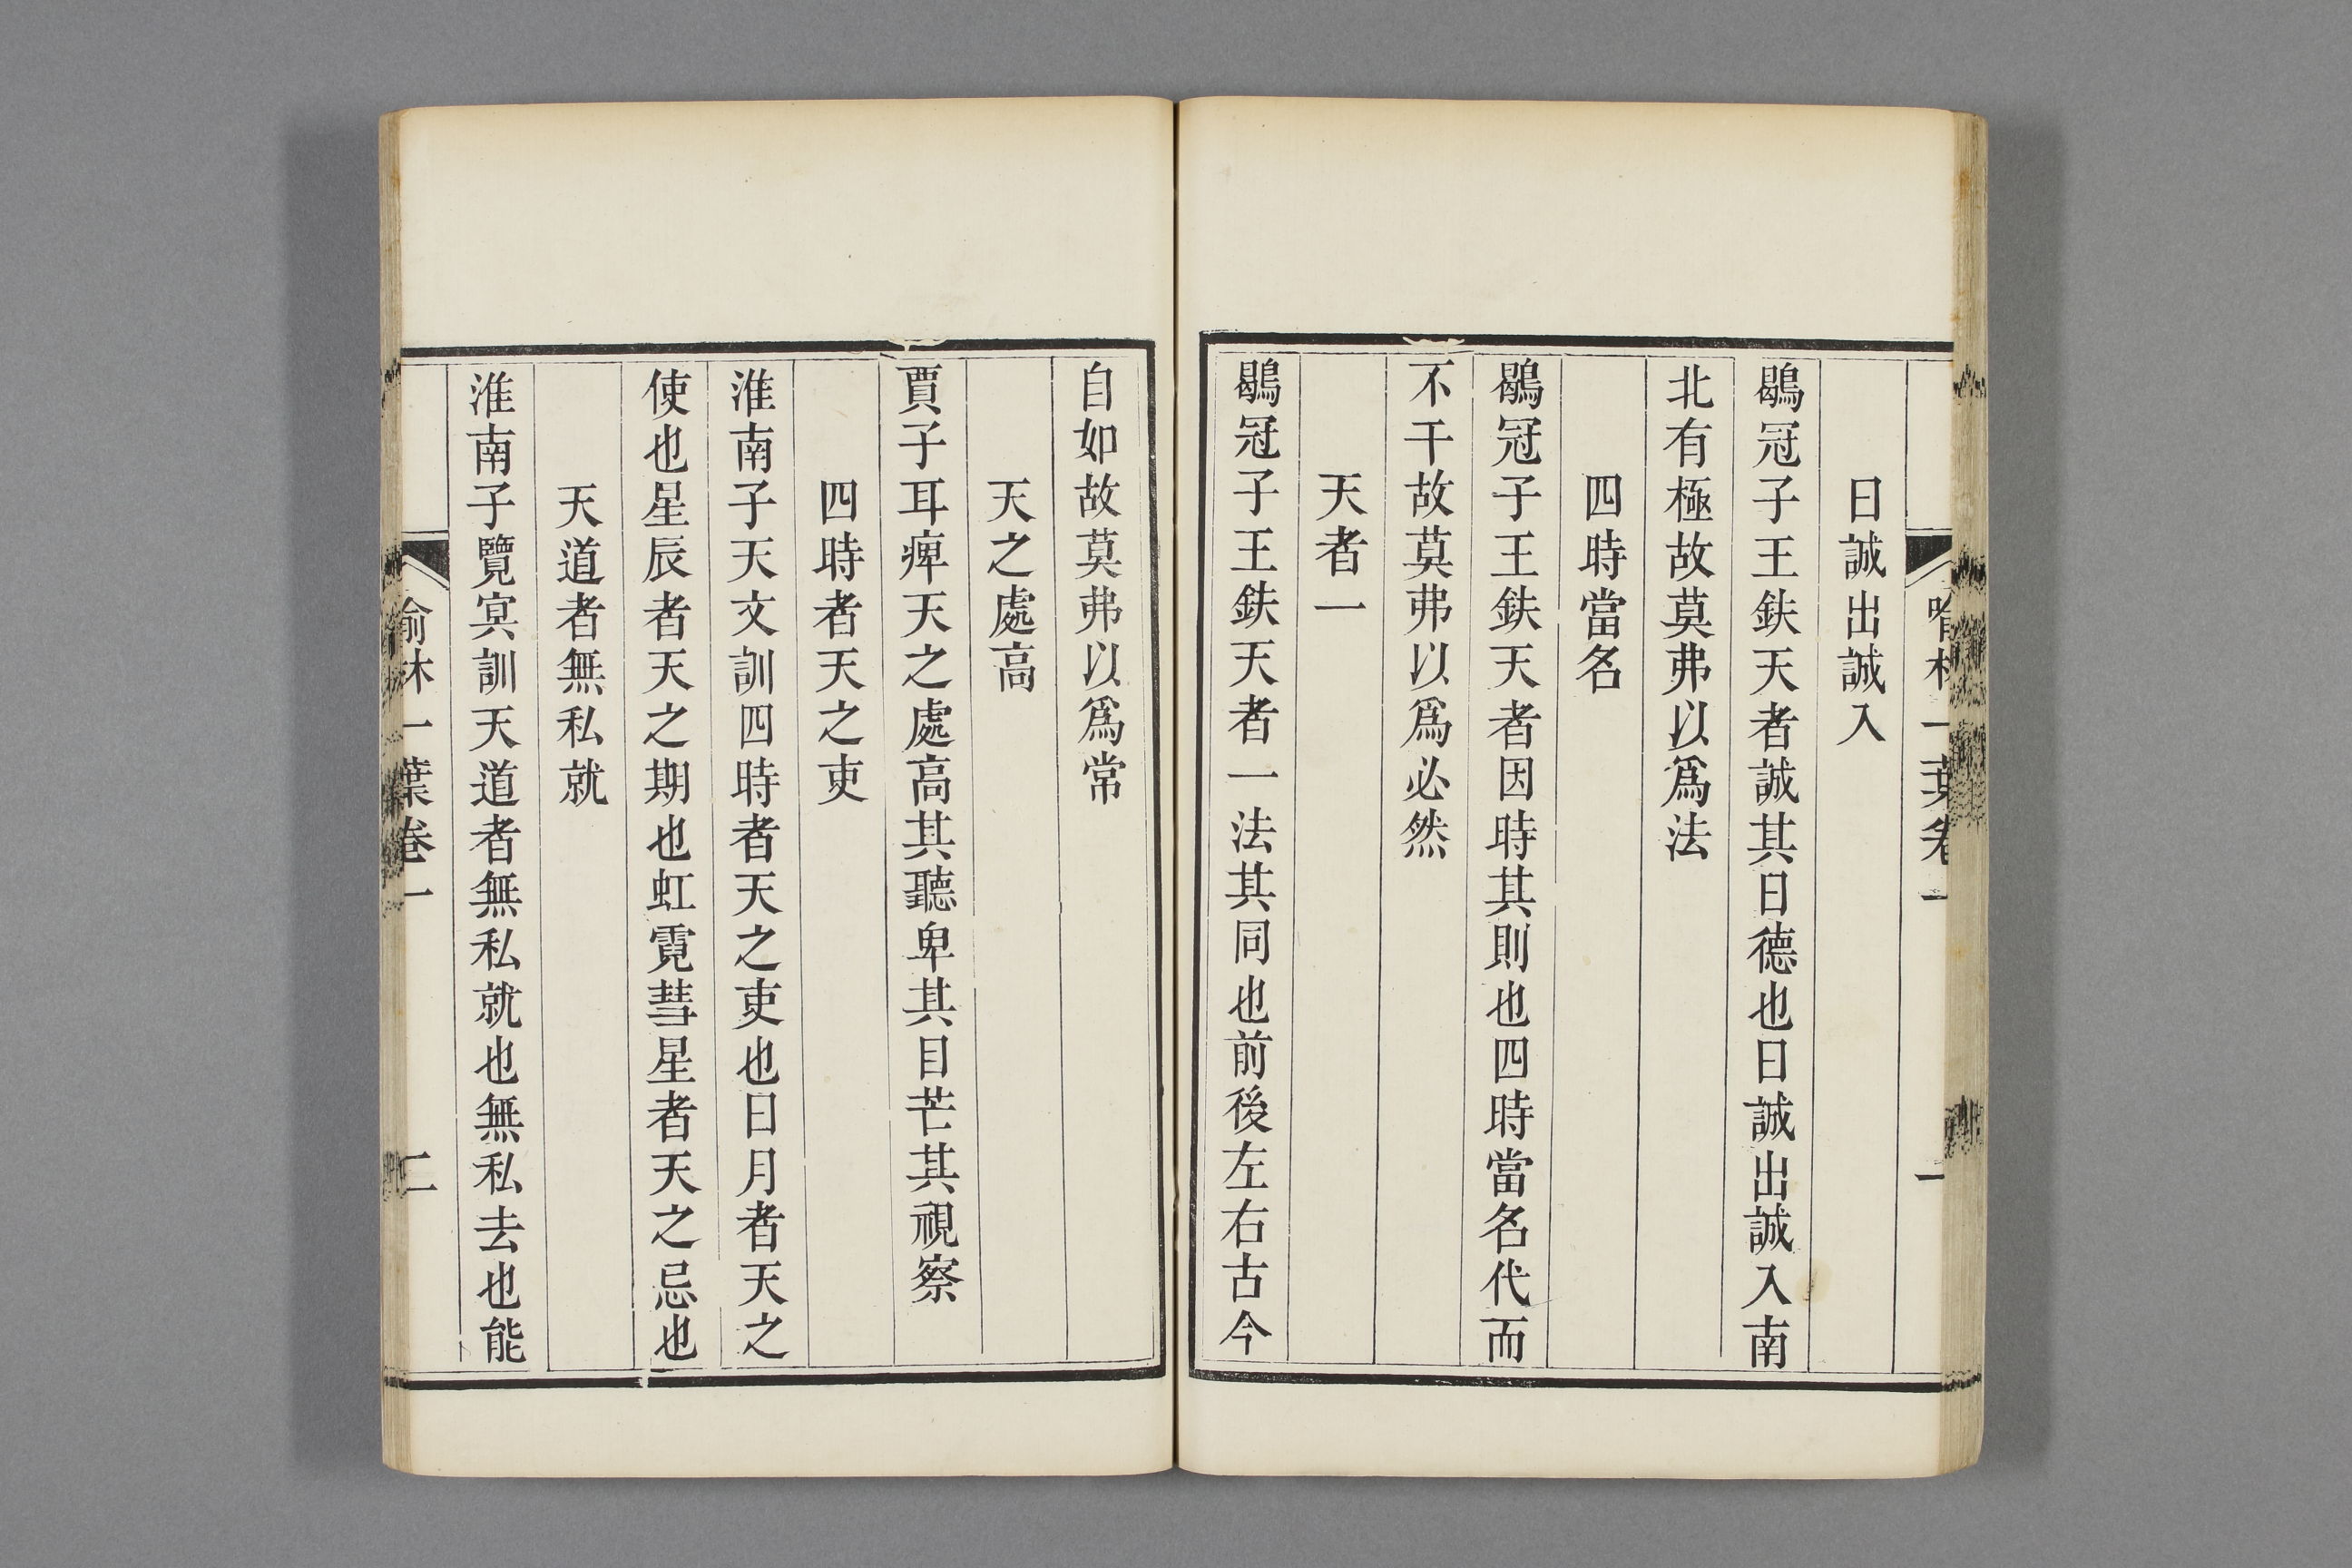 日誠出誠入
鶡冠子王鈇天者誠其日德也日誠出誠入南
北有極故莫弗以爲法
四時當名
鶡冠子王鈇天者因時其則也四時當名代而
不干故莫弗以爲必然
天者一
鶡冠子王鈇天者一法其同也前後左右古今
自如故莫弗以爲常
天之處高
賈子耳痺天之處高其聽卑其目芒其視察
四時者天之吏
淮南子天文訓四時者天之吏也日月者天之
使也星辰者天之期也虹霓彗星者天之忌也
天道者無私就
淮南子覽冥訓天道者無私就也無私去也能
一葉卷一
二